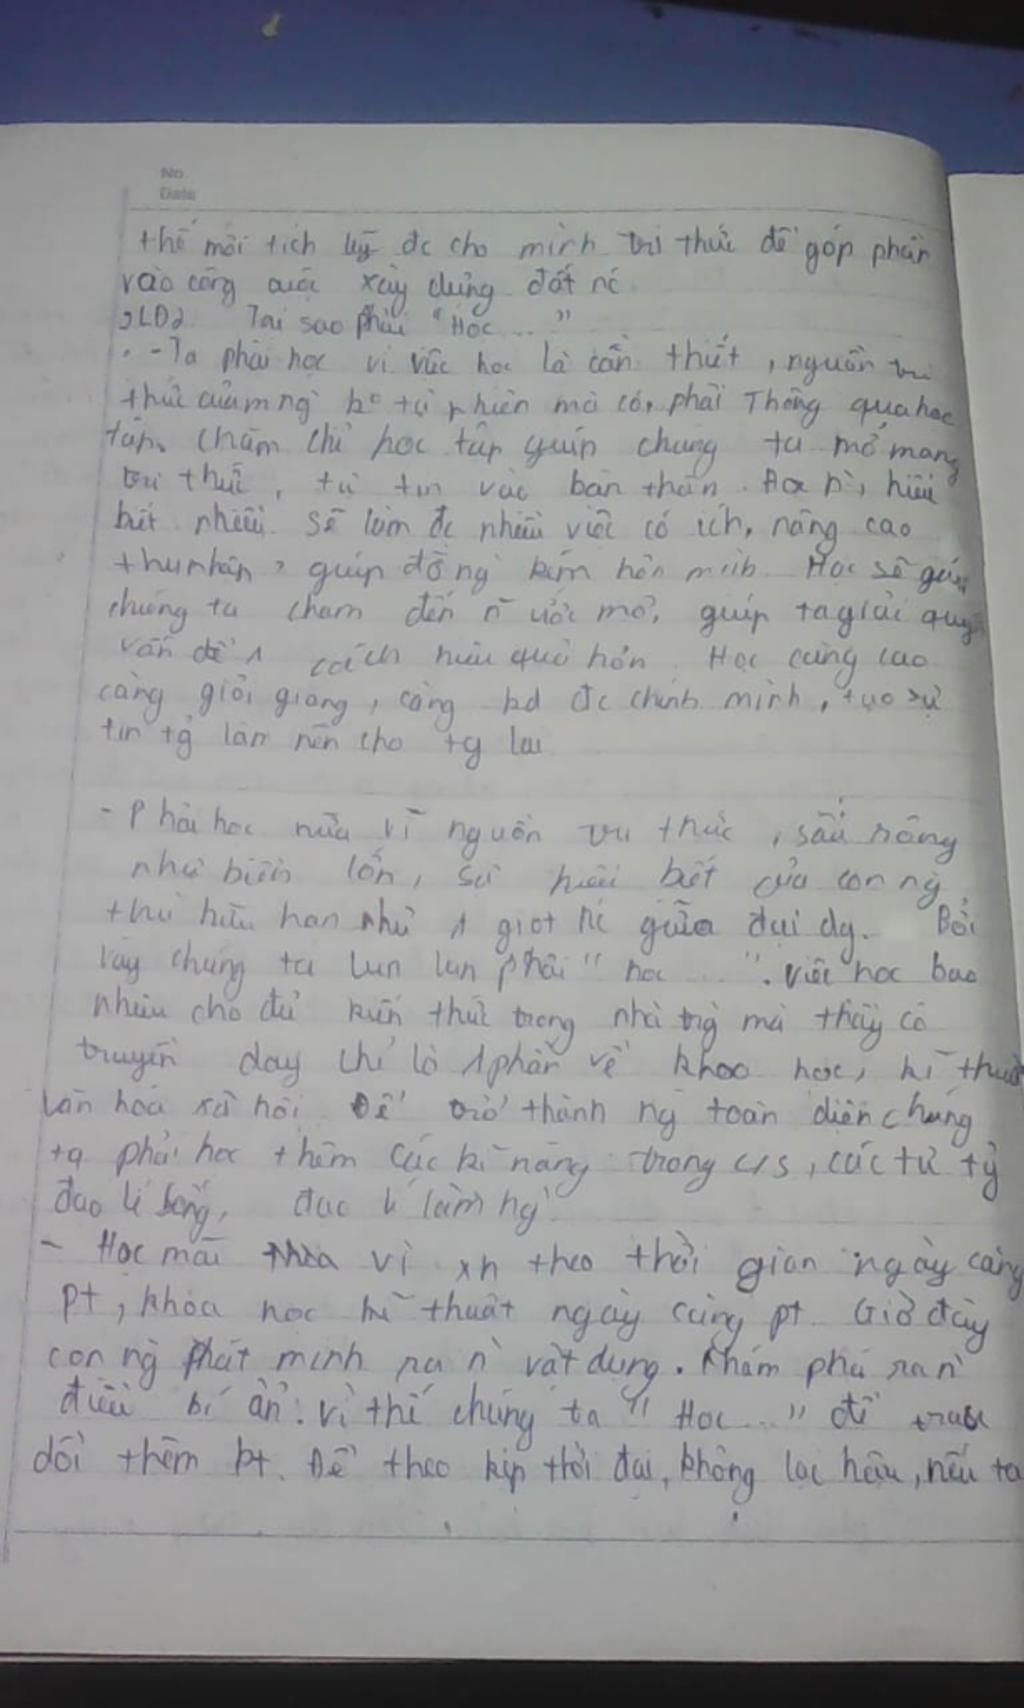 No
Date
thế mới tích luỹ đc cho mình tri thức để góp phần
vào công cuộc xây dựng đất nc
2, LD2. Tại sao phải "Học ..."
- Ta phải học vì việc học là cần thiết, nguồn tri
thức của mng ko tự nhiên mà có, phải Thông qua học
tập. Chăm chỉ học tập giúp chúng ta mở mang
tri thức, tự tin vào bản thân. hiểu
biết nhiều sẽ làm đc nhiều việc có ích, nâng cao
thu nhập, giúp đỡ ng kém hơn mình. Học sẽ giúp
chúng ta chạm đến ước mơ, giúp ta giải quy
vấn đề 1 cách hiệu quả hơn. Học càng cao
càng giỏi giang, càng kđ đc chính mình, tạo sự
tin tg làm nên cho tg lai
- Phải học nữa vì nguồn tri thức, sâu rộng
như biển lớn, sự hiểu biết của con ng
thì hữu hạn như 1 giọt nc giữa đại dg. Bởi
vậy chúng ta lun lun phải "học ...". việc học bao
nhiêu cho đủ kiến thức trong nhà trg mà thầy cô
truyền dạy chỉ là 1 phần về khoa học, kĩ thuậ
văn hoá xã hội. Để trở thành ng toàn diện chúng
ta phải học thêm các kĩ năng trong c/s, các tư tg
đạo lí sống, đạo lí làm ng
- Học mãi vì xh theo thời gian ngày càng
pt, khoa học kĩ thuật ngày càng pt. Giờ đây
con ng phát minh ra n` vật dụng. Khám phá ra n`
điều bí ẩn. vì thế chúng ta "Học ..." để trau
dồi thêm kt. Để theo kịp thời đại, không lạc hậu, nếu ta